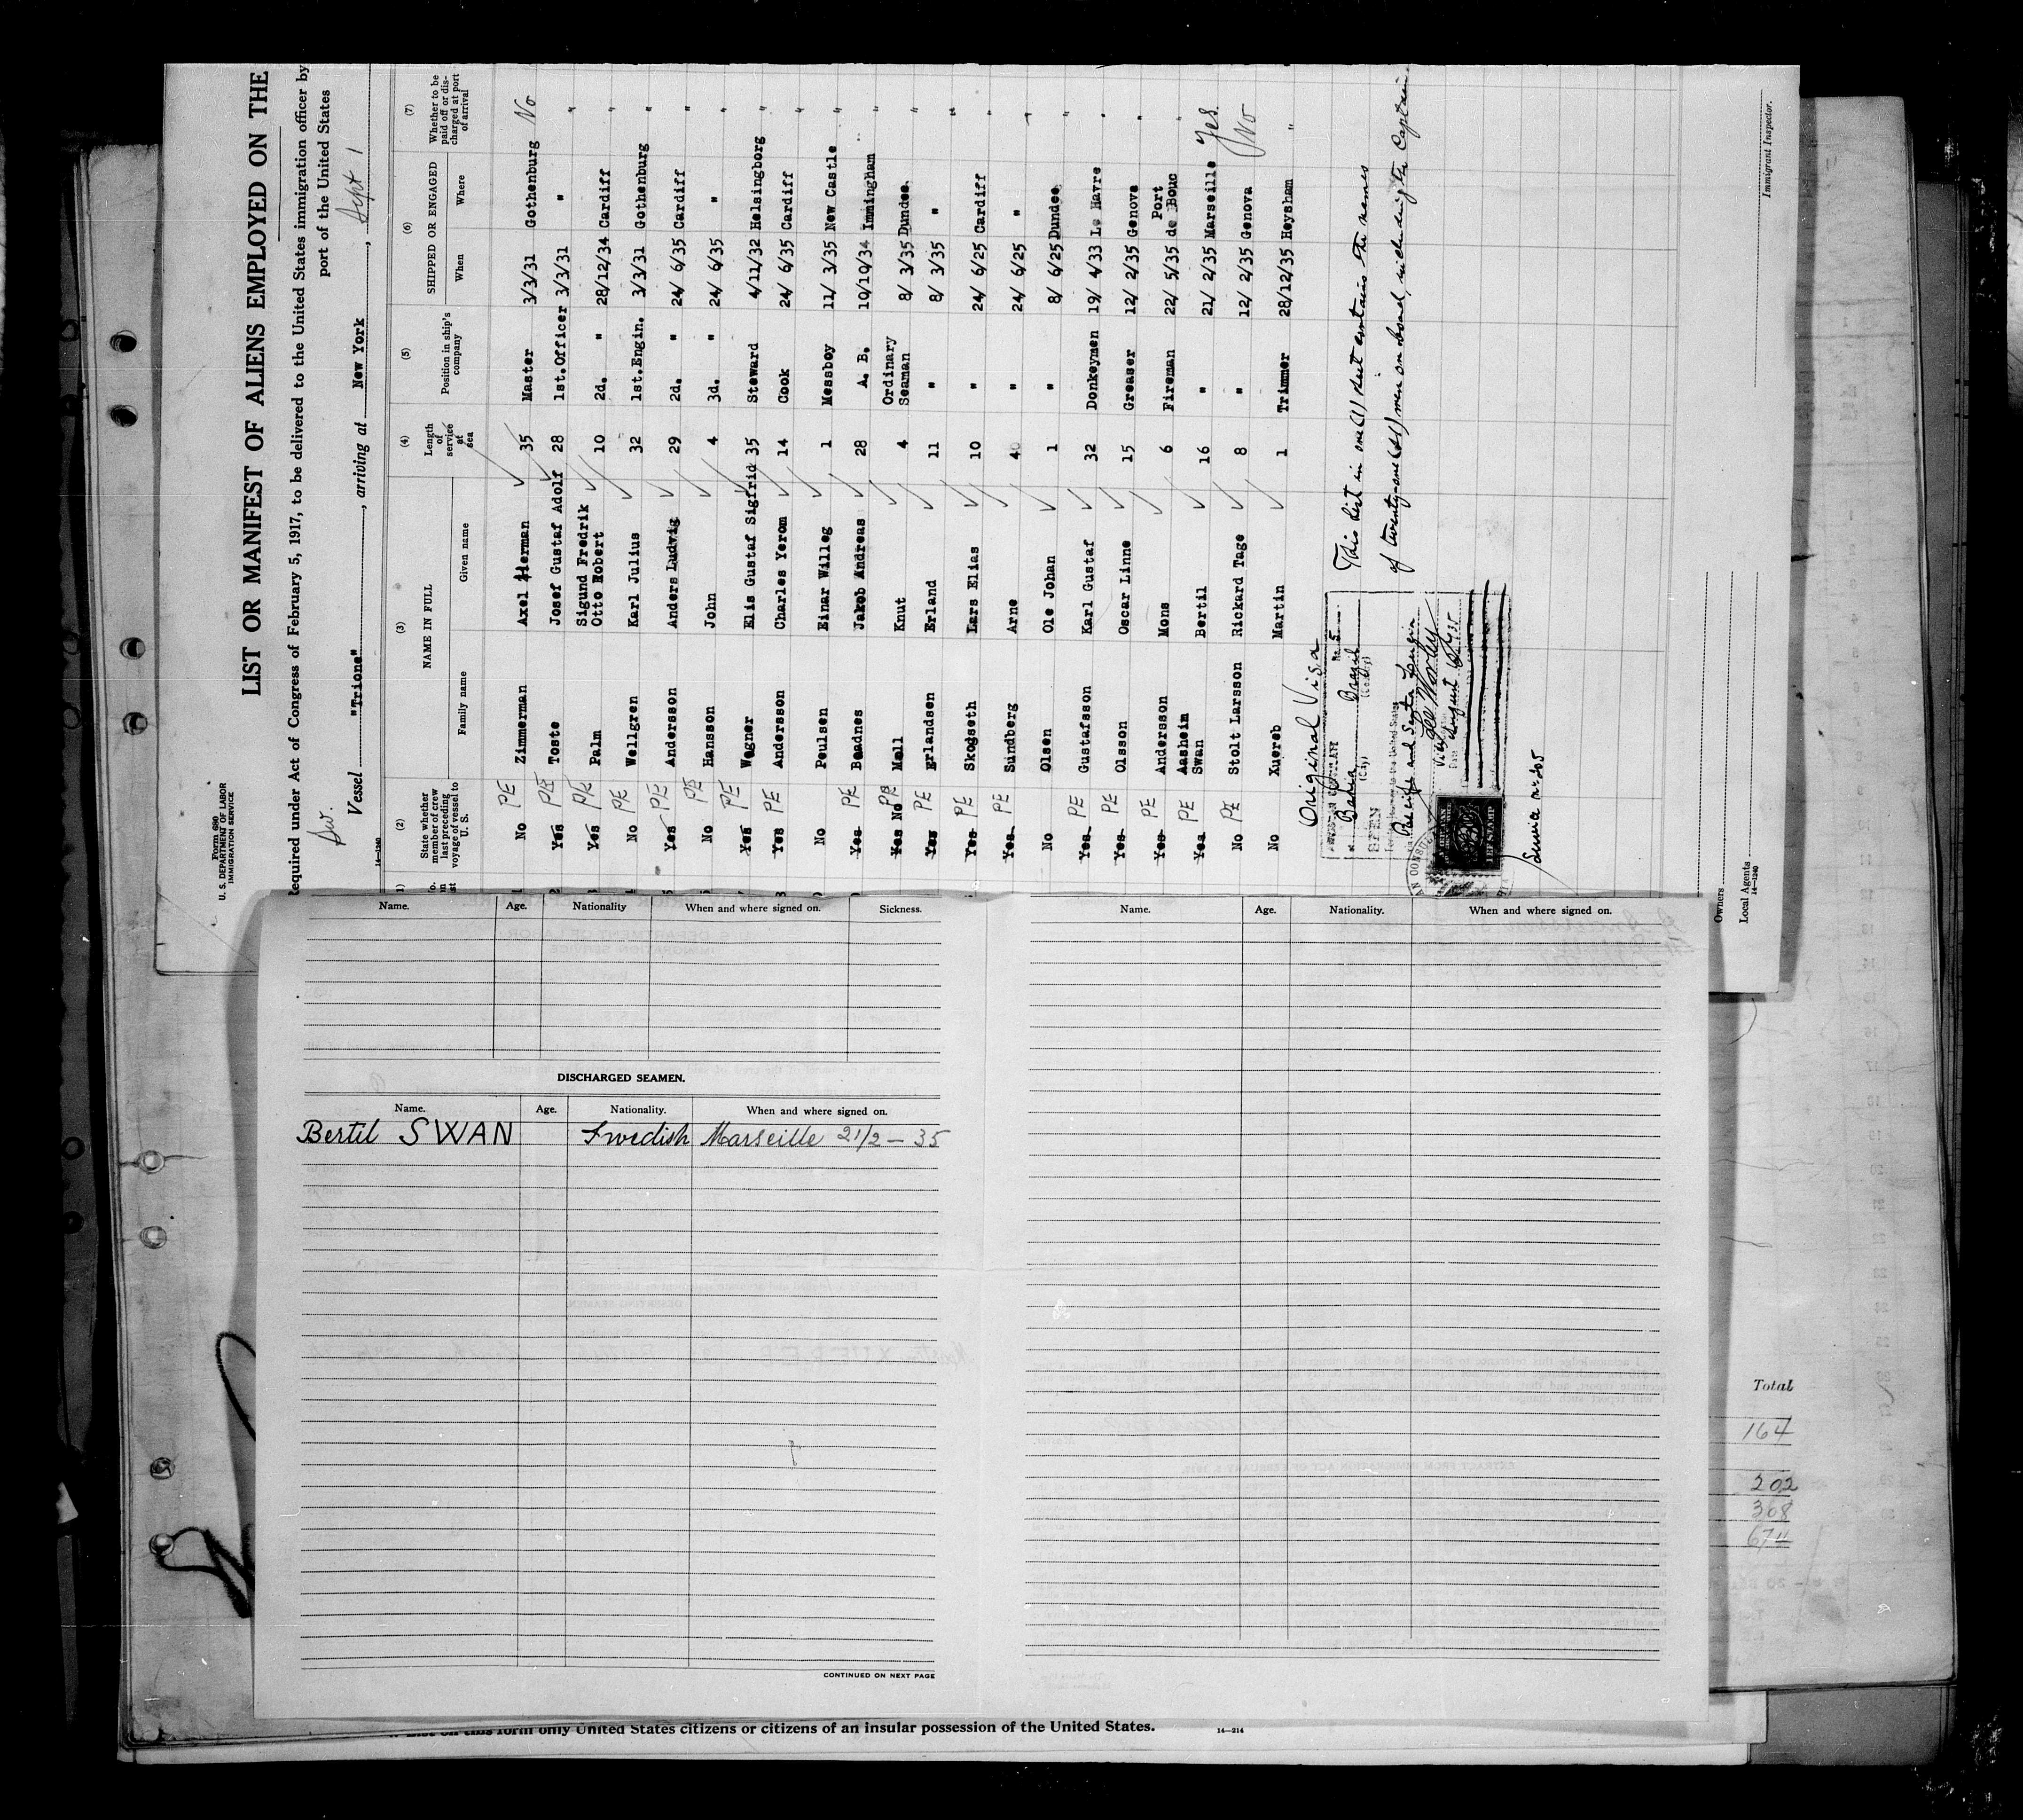 Form 680
U. S. DEPARTMENT OF LABOR
IMMIGRATION SERVICE
LIST OR MANIFEST OF ALIENS EMPLOYED ON THE
Required under Act of Congress of February 5, 1917, to be delivered to the United States immigration officer by
port of the United States
Sw.
Vessel "Trione", arriving at New York, Sept 1
14—1240
(2) (3) (4) (5) (6) (7)
State whether member of crew last preceding voyage of vessel to U. S. NAME IN FULL Length of service at sea Position in ship's company SHIPPED OR ENGAGED Whether to be paid off or discharged at port of arrival
Family name Given name When Where
No PE Zimmerman Axel Herman 35 Master 3/3/31 Gothenburg No
Yes PE Toste Josef Gustaf Adolf 28 1st.Officer 3/3/31 " "
Yes PE Palm Sigund Fredrik Otto Robert 10 2d. " 28/12/34 Cardiff "
No PE Wellgren Karl Julius 32 1st.Engin. 3/3/31 Gothenburg "
Yes PE Andersson Anders Ludvig 29 2d. " 24/ 6/35 Cardiff "
No PE Hansson John 4 3d. " 24/ 6/35 " "
Yes PE Wagner Elis Gustaf Sigfrid 35 Steward 4/11/32 Helsingborg "
Yes PE Andersson Charles Yerom 14 Cook 24/ 6/35 Cardiff "
No Poulsen Einar Willeg 1 Messboy 11/ 3/35 New Castle "
Yes PE Beadnes Jakob Andreas 28 A. B. 10/10/34 Immingham "
Yes No PE Moll Knut 4 Ordinary Seaman 8/ 3/35 Dundee "
Yes PE Erlandsen Erland 11 " 8/ 3/35 " "
Yes PE Skogseth Lars Elias 10 " 24/ 6/25 Cardiff "
Yes PE Sundberg Arne 40 " 24/ 6/25 " "
No Olsen Ole Johan 1 " 8/ 6/25 Dundee "
Yes PE Gustafsson Karl Gustaf 32 Donkeymen 19/ 4/33 Le Havre "
Yes PE Olsson Oscar Linne 15 Greaser 12/ 2/35 Genova "
Yes PE Andersson Aasheim Mons 6 Fireman 22/ 5/35 Port de Bouc "
Yes PE Swan Bertil 16 " 21/ 2/35 Marseille Yes
No PE Stolt Larsson Rickard Tage 8 " 12/ 2/35 Genova No
No Xuereb Martin 1 Trimmer 28/12/35 Heysham "
Original Visa
This list in one (1) sheet contains the names
of twenty-one (21) men on board, including the Captain.
No. 5
Bahia Brazil
(City) (Country)
SEEN
Lee Worley
Date August
Service nr. 205
Owners
Local Agents
14—1240
Immigrant Inspector.
Name. Age. Nationality When and where signed on. Sickness.
DISCHARGED SEAMEN.
Name. Age. Nationality. When and where signed on.
Bertil SWAN Swedish Marseille 21/2 — 35
CONTINUED ON NEXT PAGE
Name. Age. Nationality. When and where signed on.
Total
164
202
308
674
on this form only United States citizens or citizens of an insular possession of the United States.
14—214